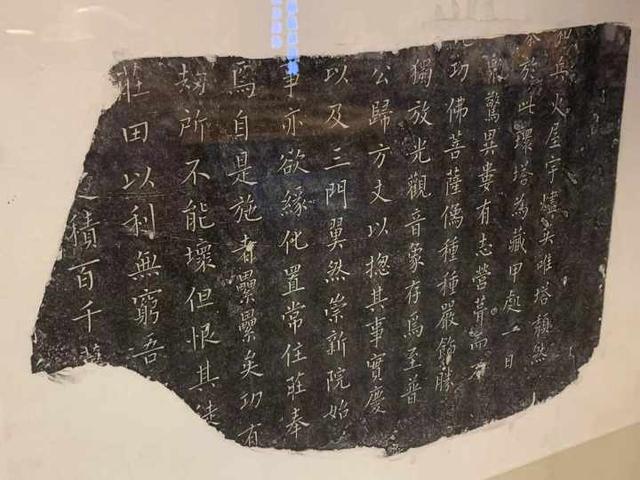 兵火屋宇燼矣唯塔頹然
於此環塔為藏甲處一日
驚異婁有志營葺而不
功佛菩薩僞種種嚴飾勝
獨放光觀音象存焉至普
公歸方丈以摠其事實慶
以及三門翼然崇新院始
事亦欲緣化置常住莊奉
焉自是施者纍纍矣功有
劫所不能壞但恨其徒
莊田以利無窮吾
之積百千